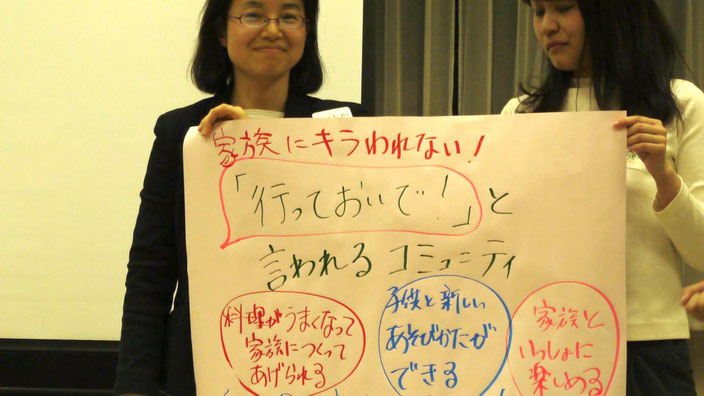 家族にキラわれない!
「行っておいで!」と
言われるコミュニティ
料理がうまくなって
家族につくって
あげられる
子供と新しい
あそびかたが
できる
家族と
いっしょに
楽しめる